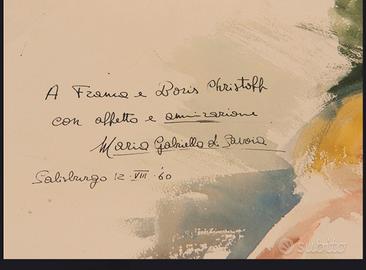 A Franca e Boris Christoff
con affetto e ammirazione
Maria Gabriella di Savoia
Salisburgo 12 VIII · 60
subito